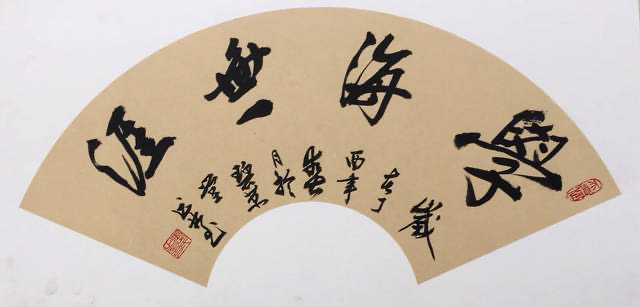 學海無涯
歲
在丁
酉年
春
月於